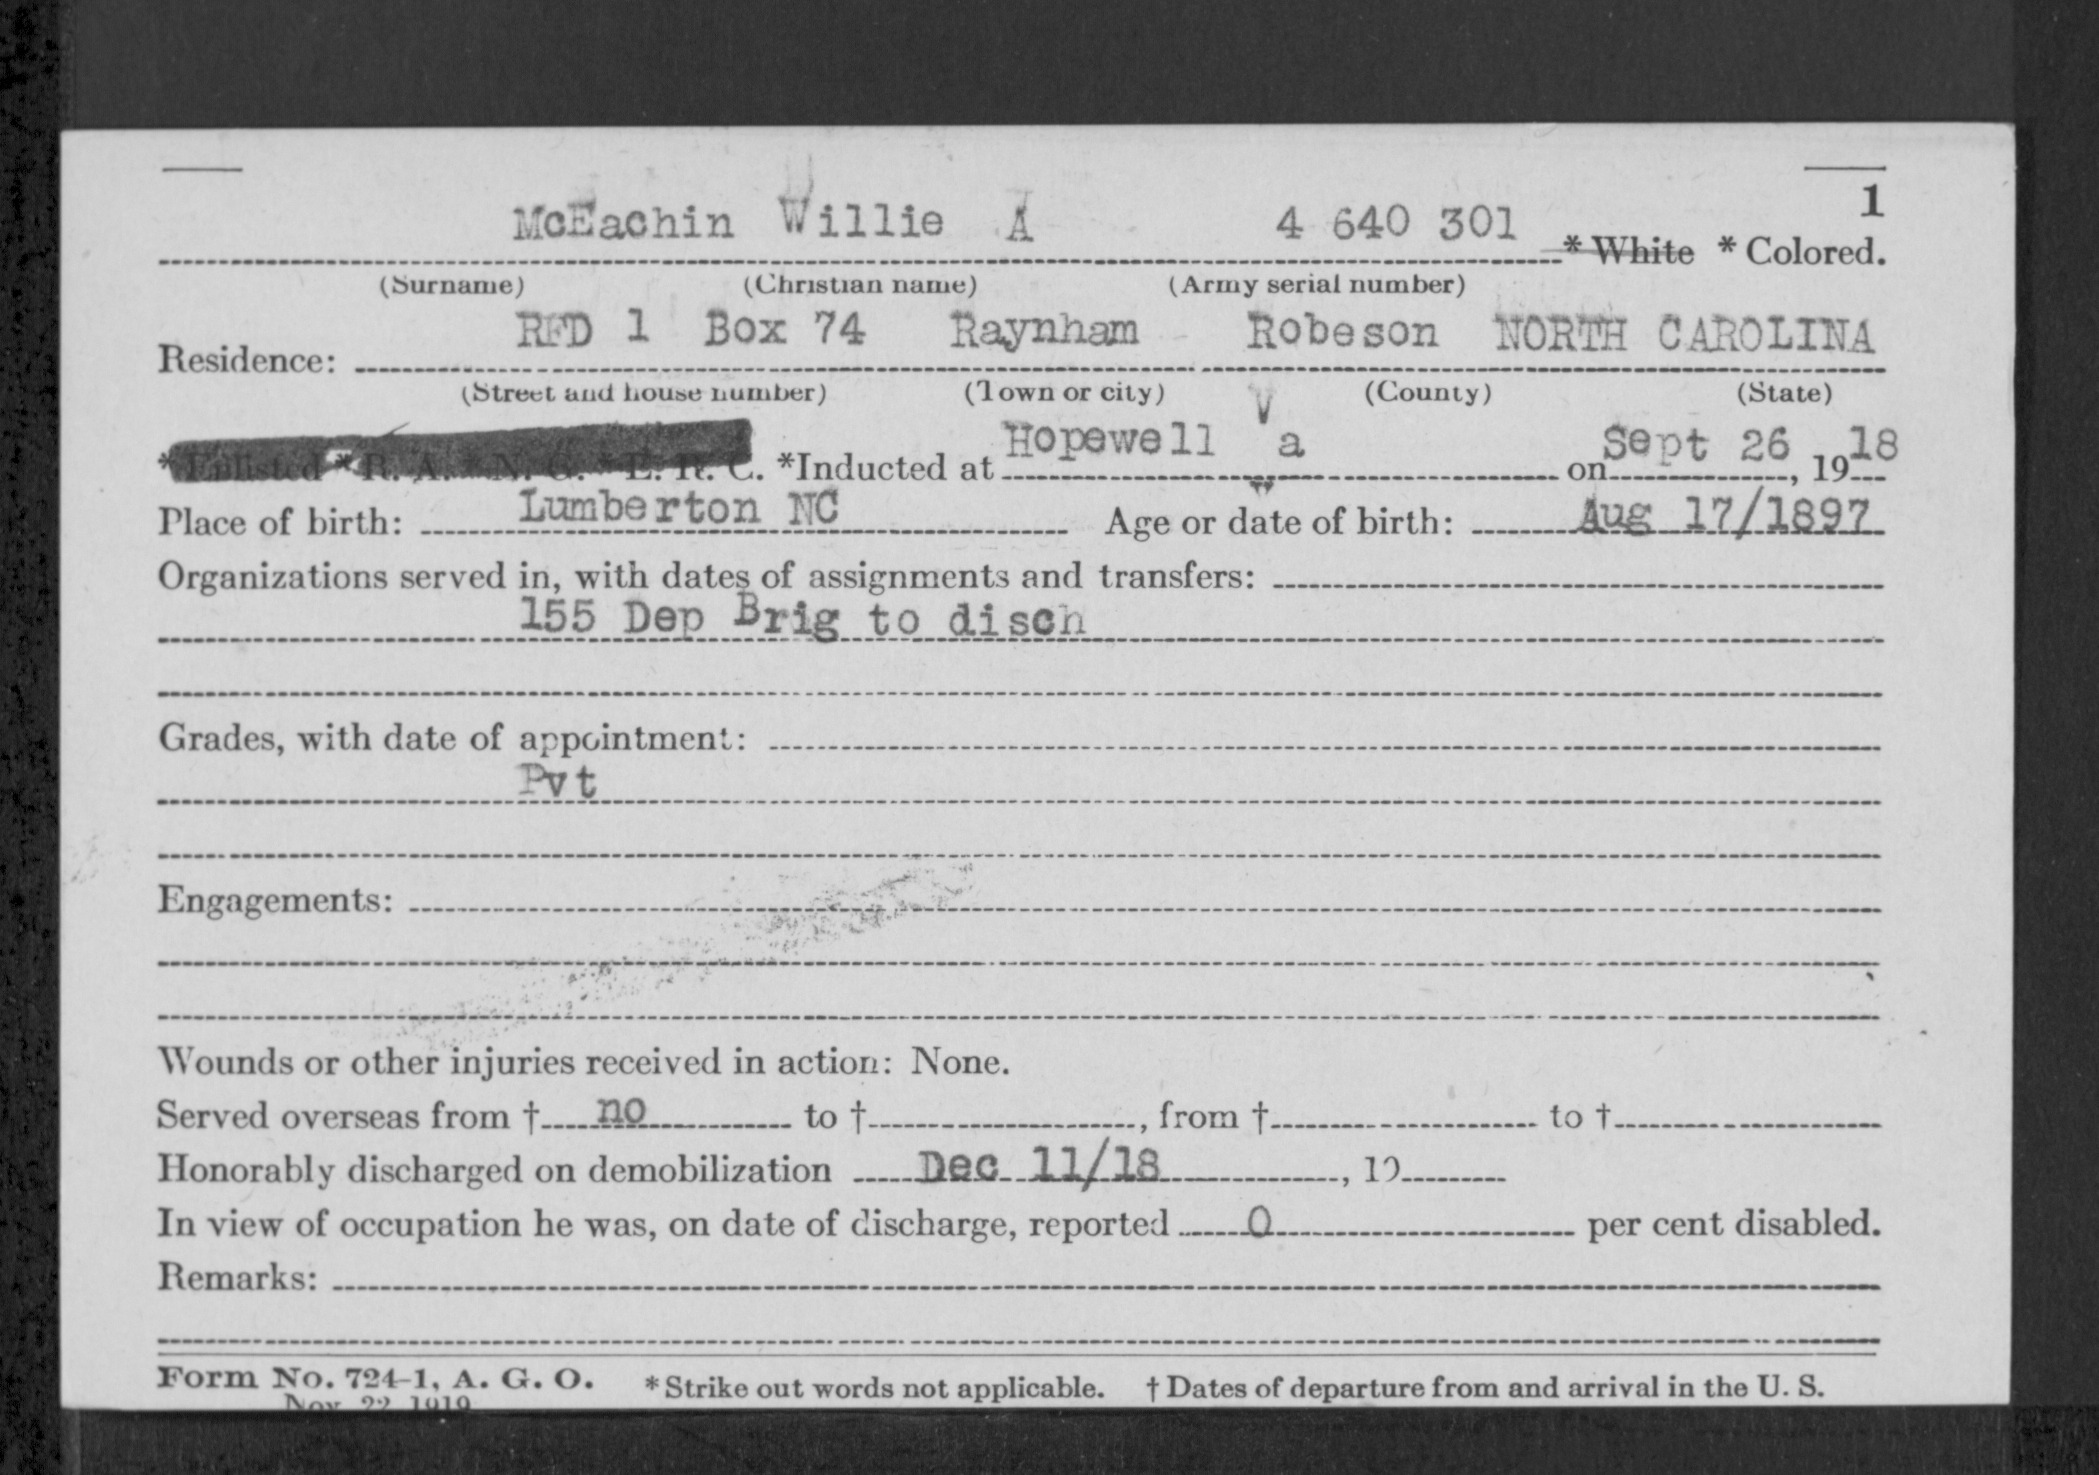 1
McEachin Willie A 4 640 301 * White * Colored.
(Surname) (Christian name) (Army serial number)
RFD 1 Box 74 Raynham Robeson NORTH CAROLINA
Residence:
(Street and house number) (Town or city) (County) (State)
*Enlisted *R. A. *N. G. *E. R. C. *Inducted at Hopewell Va on Sept 26, 1918
Place of birth: Lumberton NC Age or date of birth: Aug 17/1897
Organizations served in, with dates of assignments and transfers:
155 Dep Brig to disch
Grades, with date of appointment:
Pvt
Engagements:
Wounds or other injuries received in action: None.
Served overseas from † no to †, from † to †
Honorably discharged on demobilization Dec 11/18, 19
In view of occupation he was, on date of discharge, reported 0 per cent disabled.
Remarks:
Form No. 724-1, A. G. O. * Strike out words not applicable. † Dates of departure from and arrival in the U. S.
Nov. 22 1919